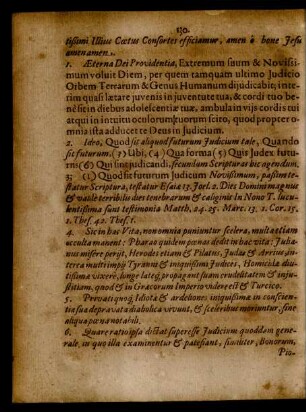 150.
tissimi Illius Cœtus Consortes efficiamur, amen ô bone Jesu
amen amen.
1. Æterna Dei Providentia, Extremum suum & Novissimum
voluit Diem, per quem tamquam ultimo Judicio
Orbem Terrarum & Genus Humanum dijudicabit, interim
quasi lætare juvenis in juventute tua, & cordi tuo benè
sit in diebus adolescentiæ tuæ, ambula in vijs cordis tui
atqui in intuitu oculorum tuorum scito, quod propter omnia
ista adducet te Deus in Judicium.
2. Ideo, Quod sit aliquod futurum Judicium tale, Quando
sit futurum. Ubi; (4) Qua forma (5) Quis Judex futurus
(6) Qui sint judicandi, secundum Scripturas hic agendum.
3. (1) Quod sit futurum Judicium Novissimum, passim testatur
Scriptura, testatur Esaia 13. Joel. 2. Dies Domini magnus
& valde terribilis dies tenebrarum & caliginis In Nono T. luculentissima
sunt testimonia Matth, 24. 25. Marc. 13, 1. Cor. 15,
2. Thes. 42. Thes. 1.
4. Sic in hac Vita, non omnia puniuntur scelera, multa etiam
occulta manent: Pharao quidem pœnas dedit in hac vita: Julianus
miserè perijt, Herodes etiam & Pilatus, Judas & alterius, interea
multi impij Tyranni & iniquissimi Judices, Homicidæ diutissimè
vixere, longe lateq; propagarunt suam crudelitatem & injustitiam,
quod & in Græcorum Imperio videre est & Turcico.
5. Privati quoq; Idiotæ & ardeliones iniquissimæ in conscientia
sua depravata diabolica vivunt, & sceleribus moriuntur, sine
aliqua pœna notabili.
6. Quare ratio ipsa dictat superesse Judicium quoddam generale,
in quo illa examinentur & patefiant, similiter, Bonorum,
Pio-